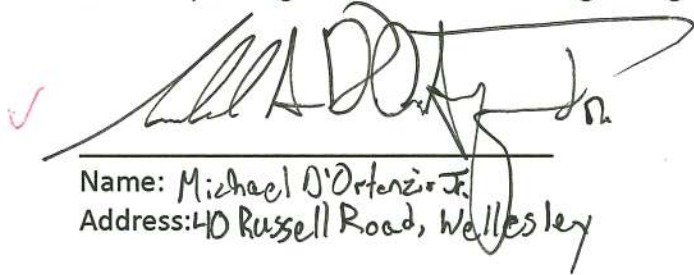 Name: Michael D'Ortenzio Jr.
Address: 40 Russell Road, Wellesley